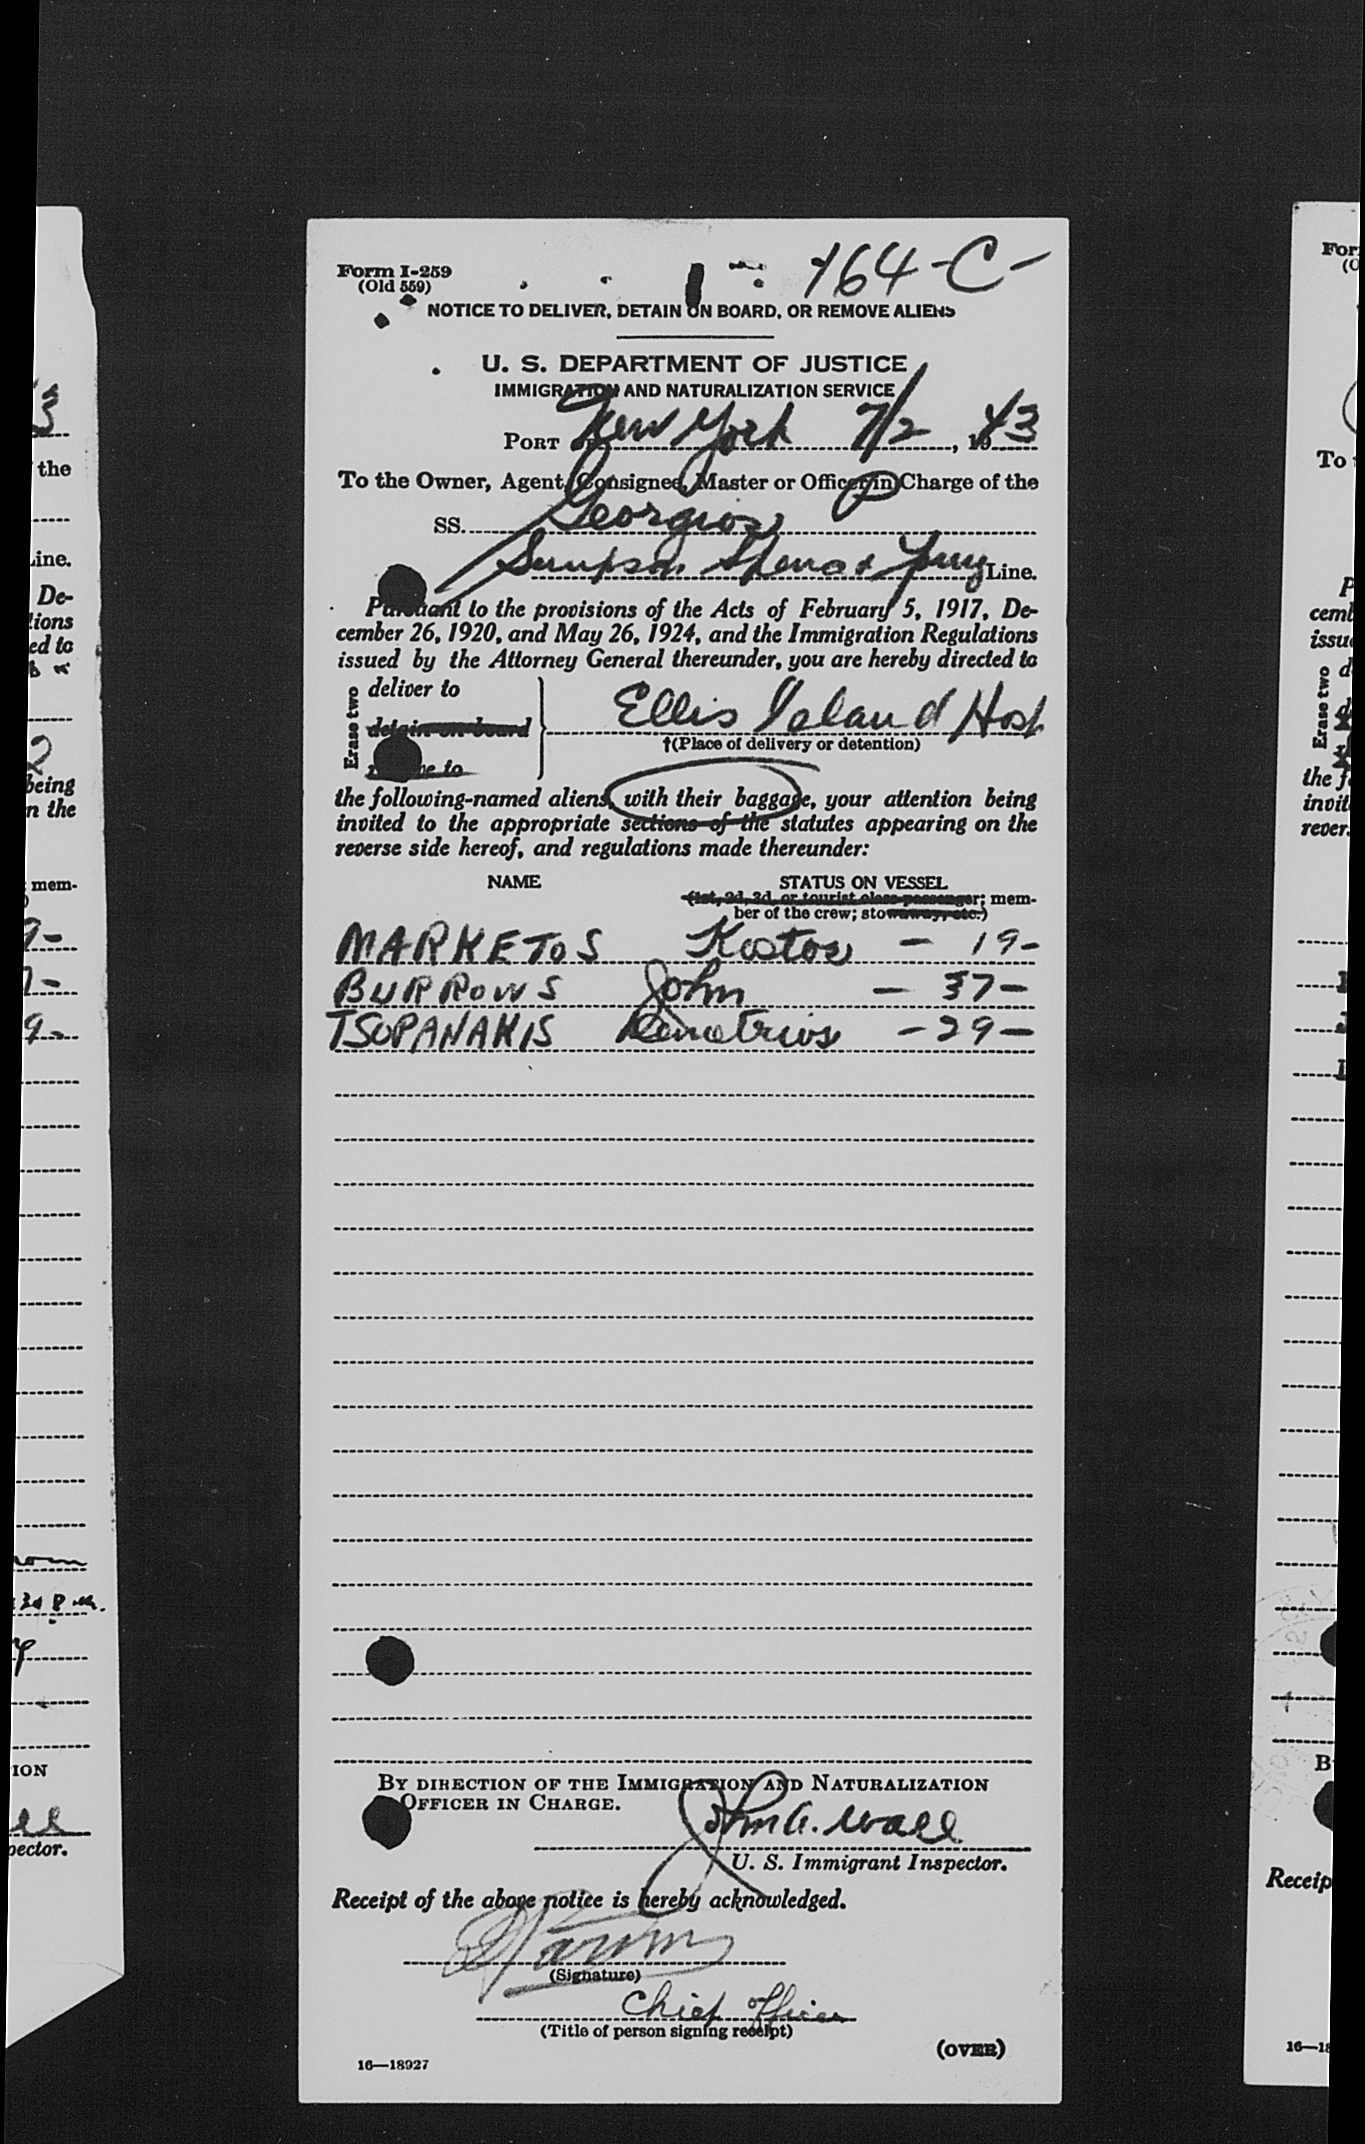 Form I-259
(Old 559)
164-C-
NOTICE TO DELIVER, DETAIN ON BOARD, OR REMOVE ALIENS
U. S. DEPARTMENT OF JUSTICE
IMMIGRATION AND NATURALIZATION SERVICE
PORT OF New York 7/2, 1943
To the Owner, Agent, Consignee, Master or Officer in Charge of the
SS. Georgios
Simpson Spence & Young Line.
Pursuant to the provisions of the Acts of February 5, 1917, De-
cember 26, 1920, and May 26, 1924, and the Immigration Regulations
issued by the Attorney General thereunder, you are hereby directed to
Erase two
deliver to
detain on board
remove to
Ellis Island Hosp
†(Place of delivery or detention)
the following-named aliens, with their baggage, your attention being
invited to the appropriate sections of the statutes appearing on the
reverse side hereof, and regulations made thereunder:
NAME STATUS ON VESSEL
(1st, 2d, 3d, or tourist class passenger; mem-
ber of the crew; stowaway, etc.)
MARKETOS Kostos - 19-
BURROWS John - 37-
TSOPANAKIS Demetrios - 29-
BY DIRECTION OF THE IMMIGRATION AND NATURALIZATION
OFFICER IN CHARGE.
John A. Wall
U. S. Immigrant Inspector.
Receipt of the above notice is hereby acknowledged.
(Signature)
Chief officer
(Title of person signing receipt)
(OVER)
16—18927